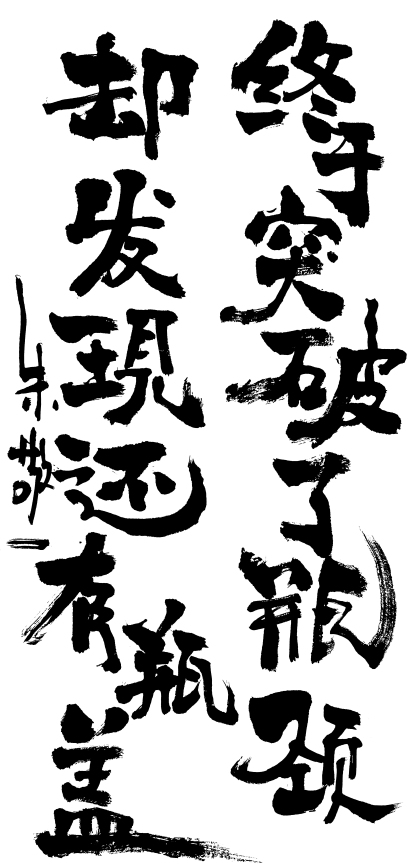 终于突破了瓶颈
却发现还有瓶盖
朱敬一